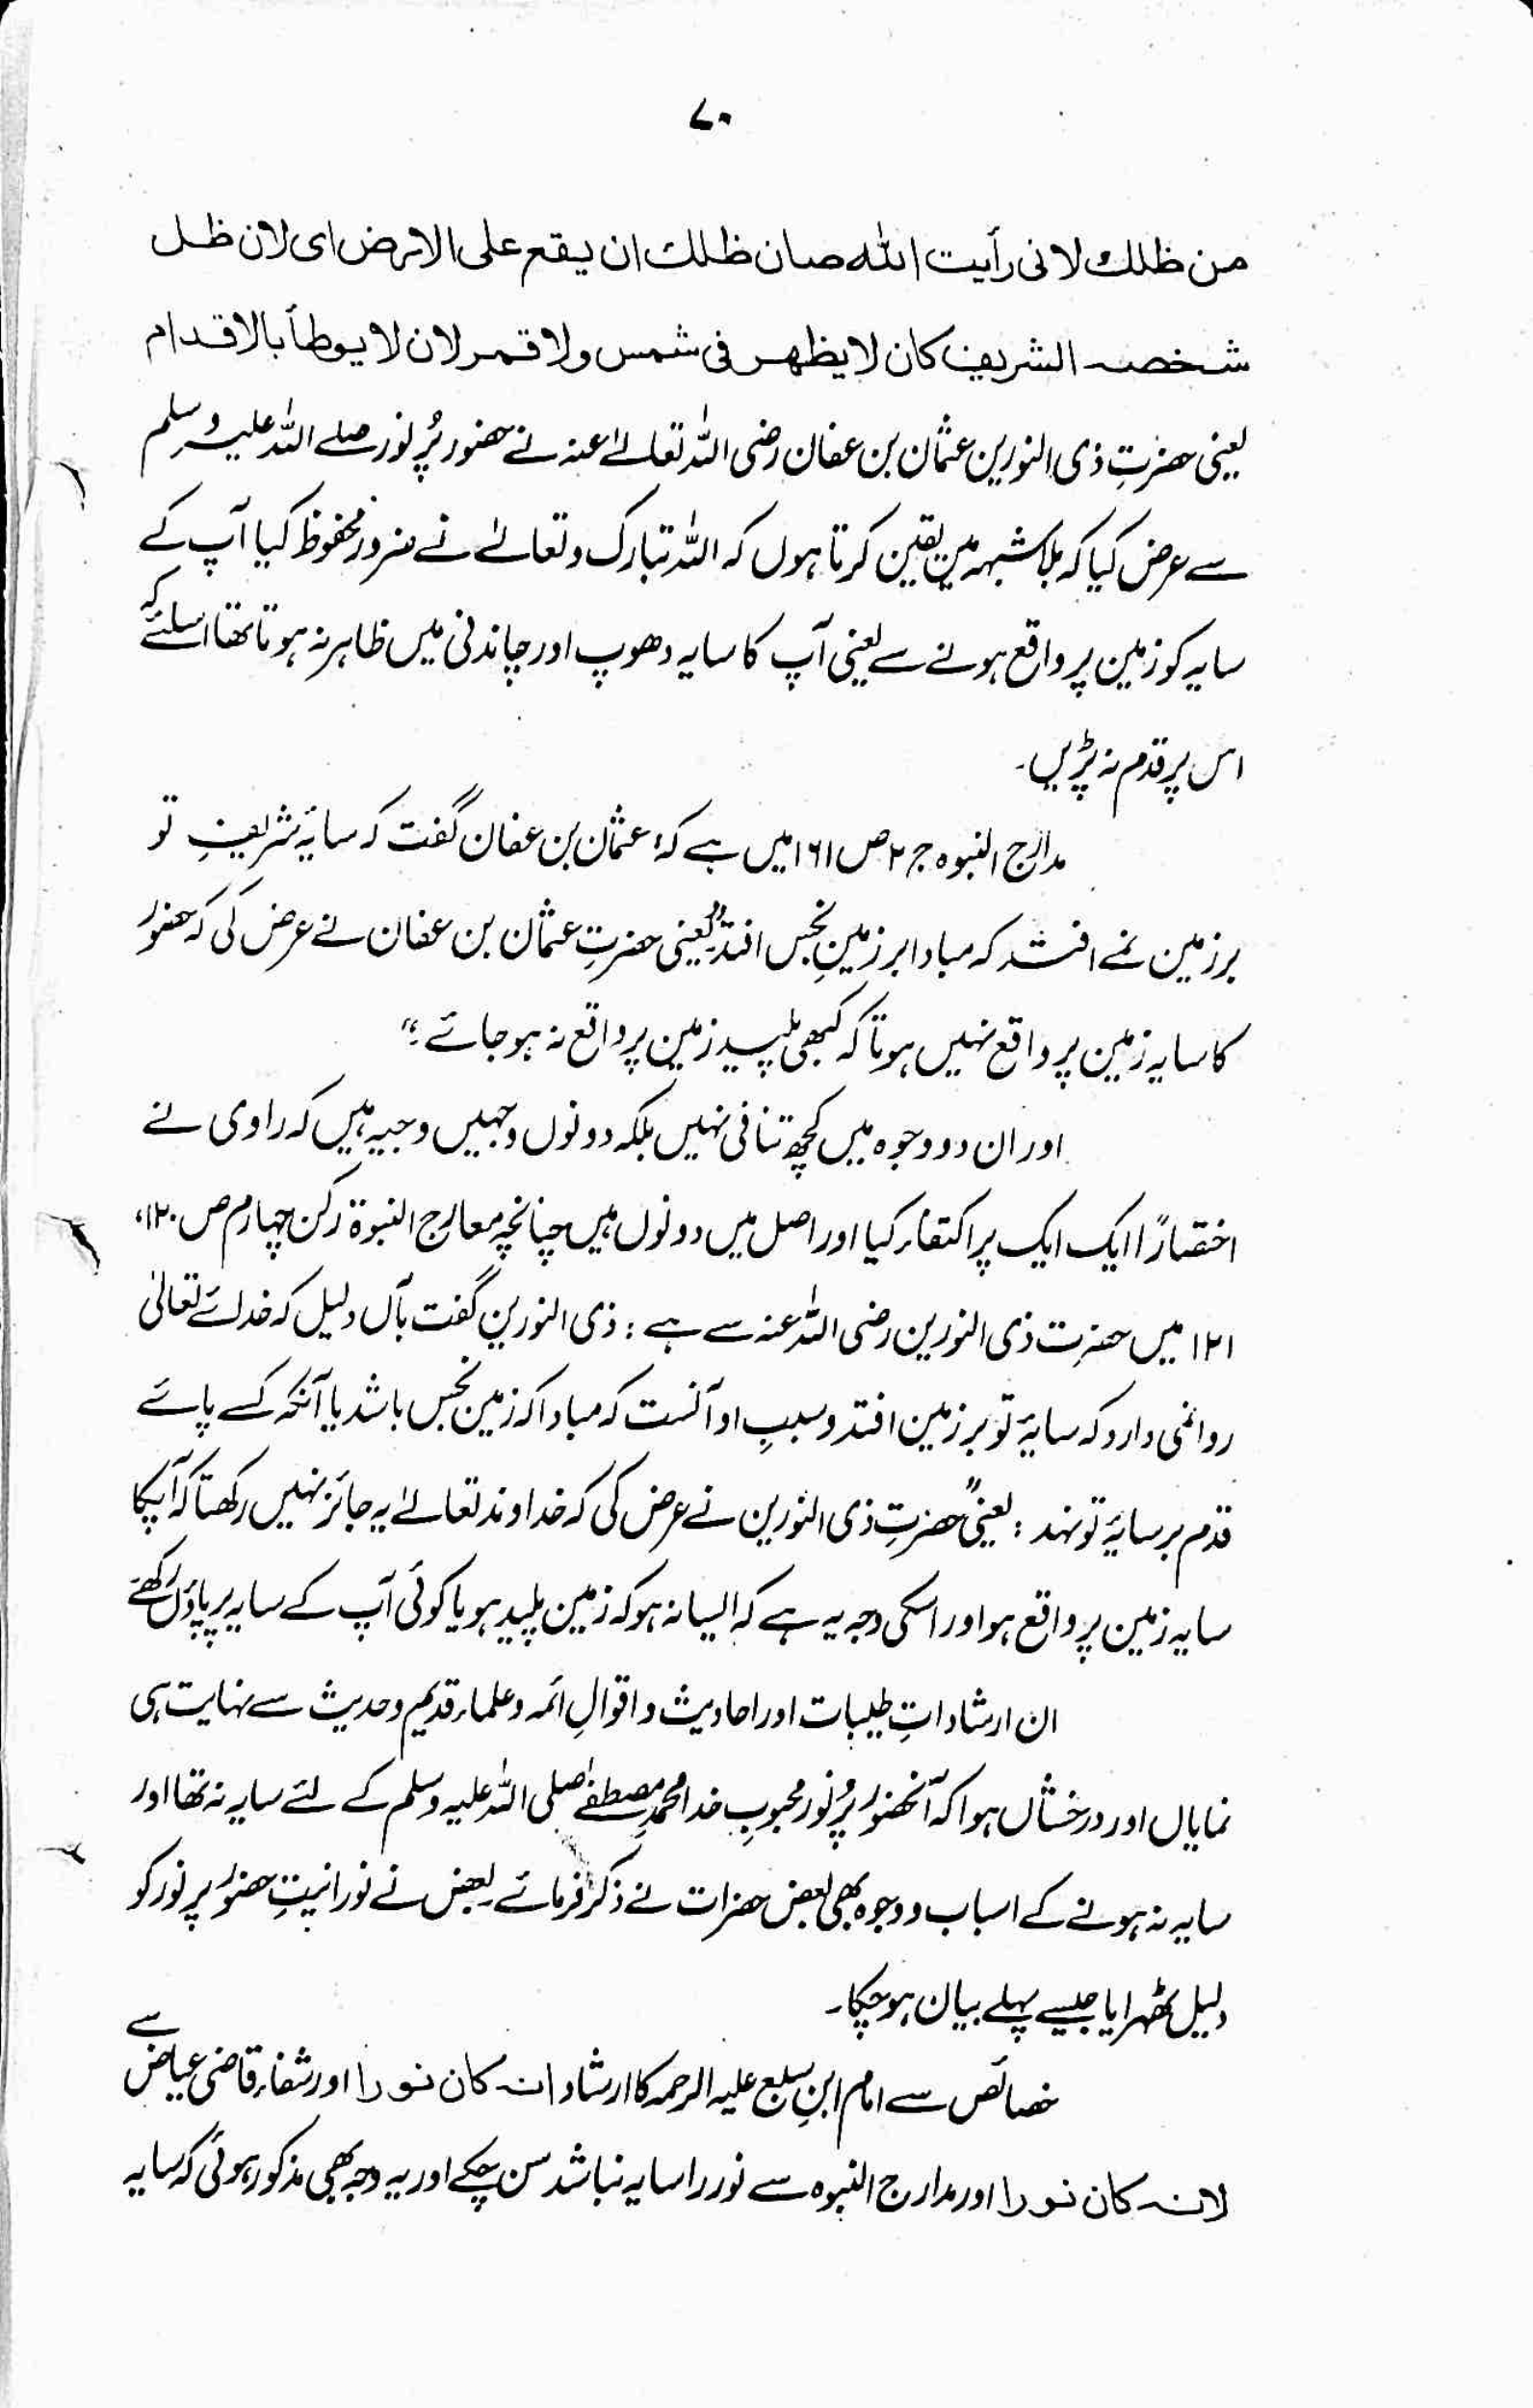 ۷۰
من ظللك لانی رأیت اللہ صان ظللك ان یقع علی الارض ای لان ظل
شخصہ الشریف کان لا یظھر فی شمس ولا قمر لان لا یوطأ بالاقدام
یعنی حضرتِ ذی النورین عثمان بن عفان رضی اللہ تعالےٰ عنہ نے حضور پُر نور صلے اللہ علیہ وسلم
سے عرض کیا کہ بلاشبہہ میں یقین کرتا ہوں کہ اللہ تبارک وتعالےٰ نے ضرور محفوظ کیا آپ کے
سایہ کو زمین پر واقع ہونے سے یعنی آپ کا سایہ دھوپ اور چاندنی میں ظاہر نہ ہوتا تھا اسلئے کہ
اس پر قدم نہ پڑیں۔
مدارج النبوہ ج ۲ ص ۱۶۱ میں ہے کہ "عثمان بن عفان گفت کہ سایۂ شریفِ تو
بر زمین نمے افتد کہ مبادا بر زمینِ نجس افتد" یعنی حضرتِ عثمان بن عفان نے عرض کی کہ حضور
کا سایہ زمین پر واقع نہیں ہوتا کہ کبھی پلید زمین پر واقع نہ ہو جائے"
اور ان دو وجوہ میں کچھ تنافی نہیں بلکہ دونوں وجہیں وجیہ ہیں کہ راوی نے
اختصارًا ایک ایک پر اکتفاء کیا اور اصل میں دونوں ہیں چنانچہ معارج النبوۃ رکن چہارم ص ۱۲۰،
۱۲۱ میں حضرت ذی النورین رضی اللہ عنہ سے ہے : ذی النورین گفت بآں دلیل کہ خدائے تعالیٰ
روا نمی دارد کہ سایۂ تو بر زمین افتد و سببِ او آنست کہ مبادا کہ زمین نجس باشد یا آنکہ کسے پائے
قدم بر سایۂ تو نہد : یعنی "حضرتِ ذی النورین نے عرض کی کہ خداوند تعالےٰ یہ جائز نہیں رکھتا کہ آپکا
سایہ زمین پر واقع ہو اور اسکی وجہ یہ ہے کہ ایسا نہ ہو کہ زمین پلید ہو یا کوئی آپ کے سایہ پر پاؤں رکھے
ان ارشاداتِ طیبات اور احادیث و اقوالِ ائمہ و علماء قدیم و حدیث سے نہایت ہی
نمایاں اور درخشاں ہوا کہ آنحضور پُر نور محبوبِ خدا محمدِ مصطفےٰ صلی اللہ علیہ وسلم کے لئے سایہ نہ تھا اور
سایہ نہ ہونے کے اسباب و وجوہ بھی بعض حضرات نے ذکر فرمائے۔ بعض نے نورانیتِ حضور پر نور کو
دلیل ٹھہرایا جیسے پہلے بیان ہو چکا۔
خصائص سے امام ابنِ سبع علیہ الرحمہ کا ارشاد انہ کان نورا اور شفاء قاضی عیاض سے
لانہ کان نورا اور مدارج النبوہ سے نور را سایہ نباشد سن چکے اور یہ وجہ بھی مذکور ہوئی کہ سایہ